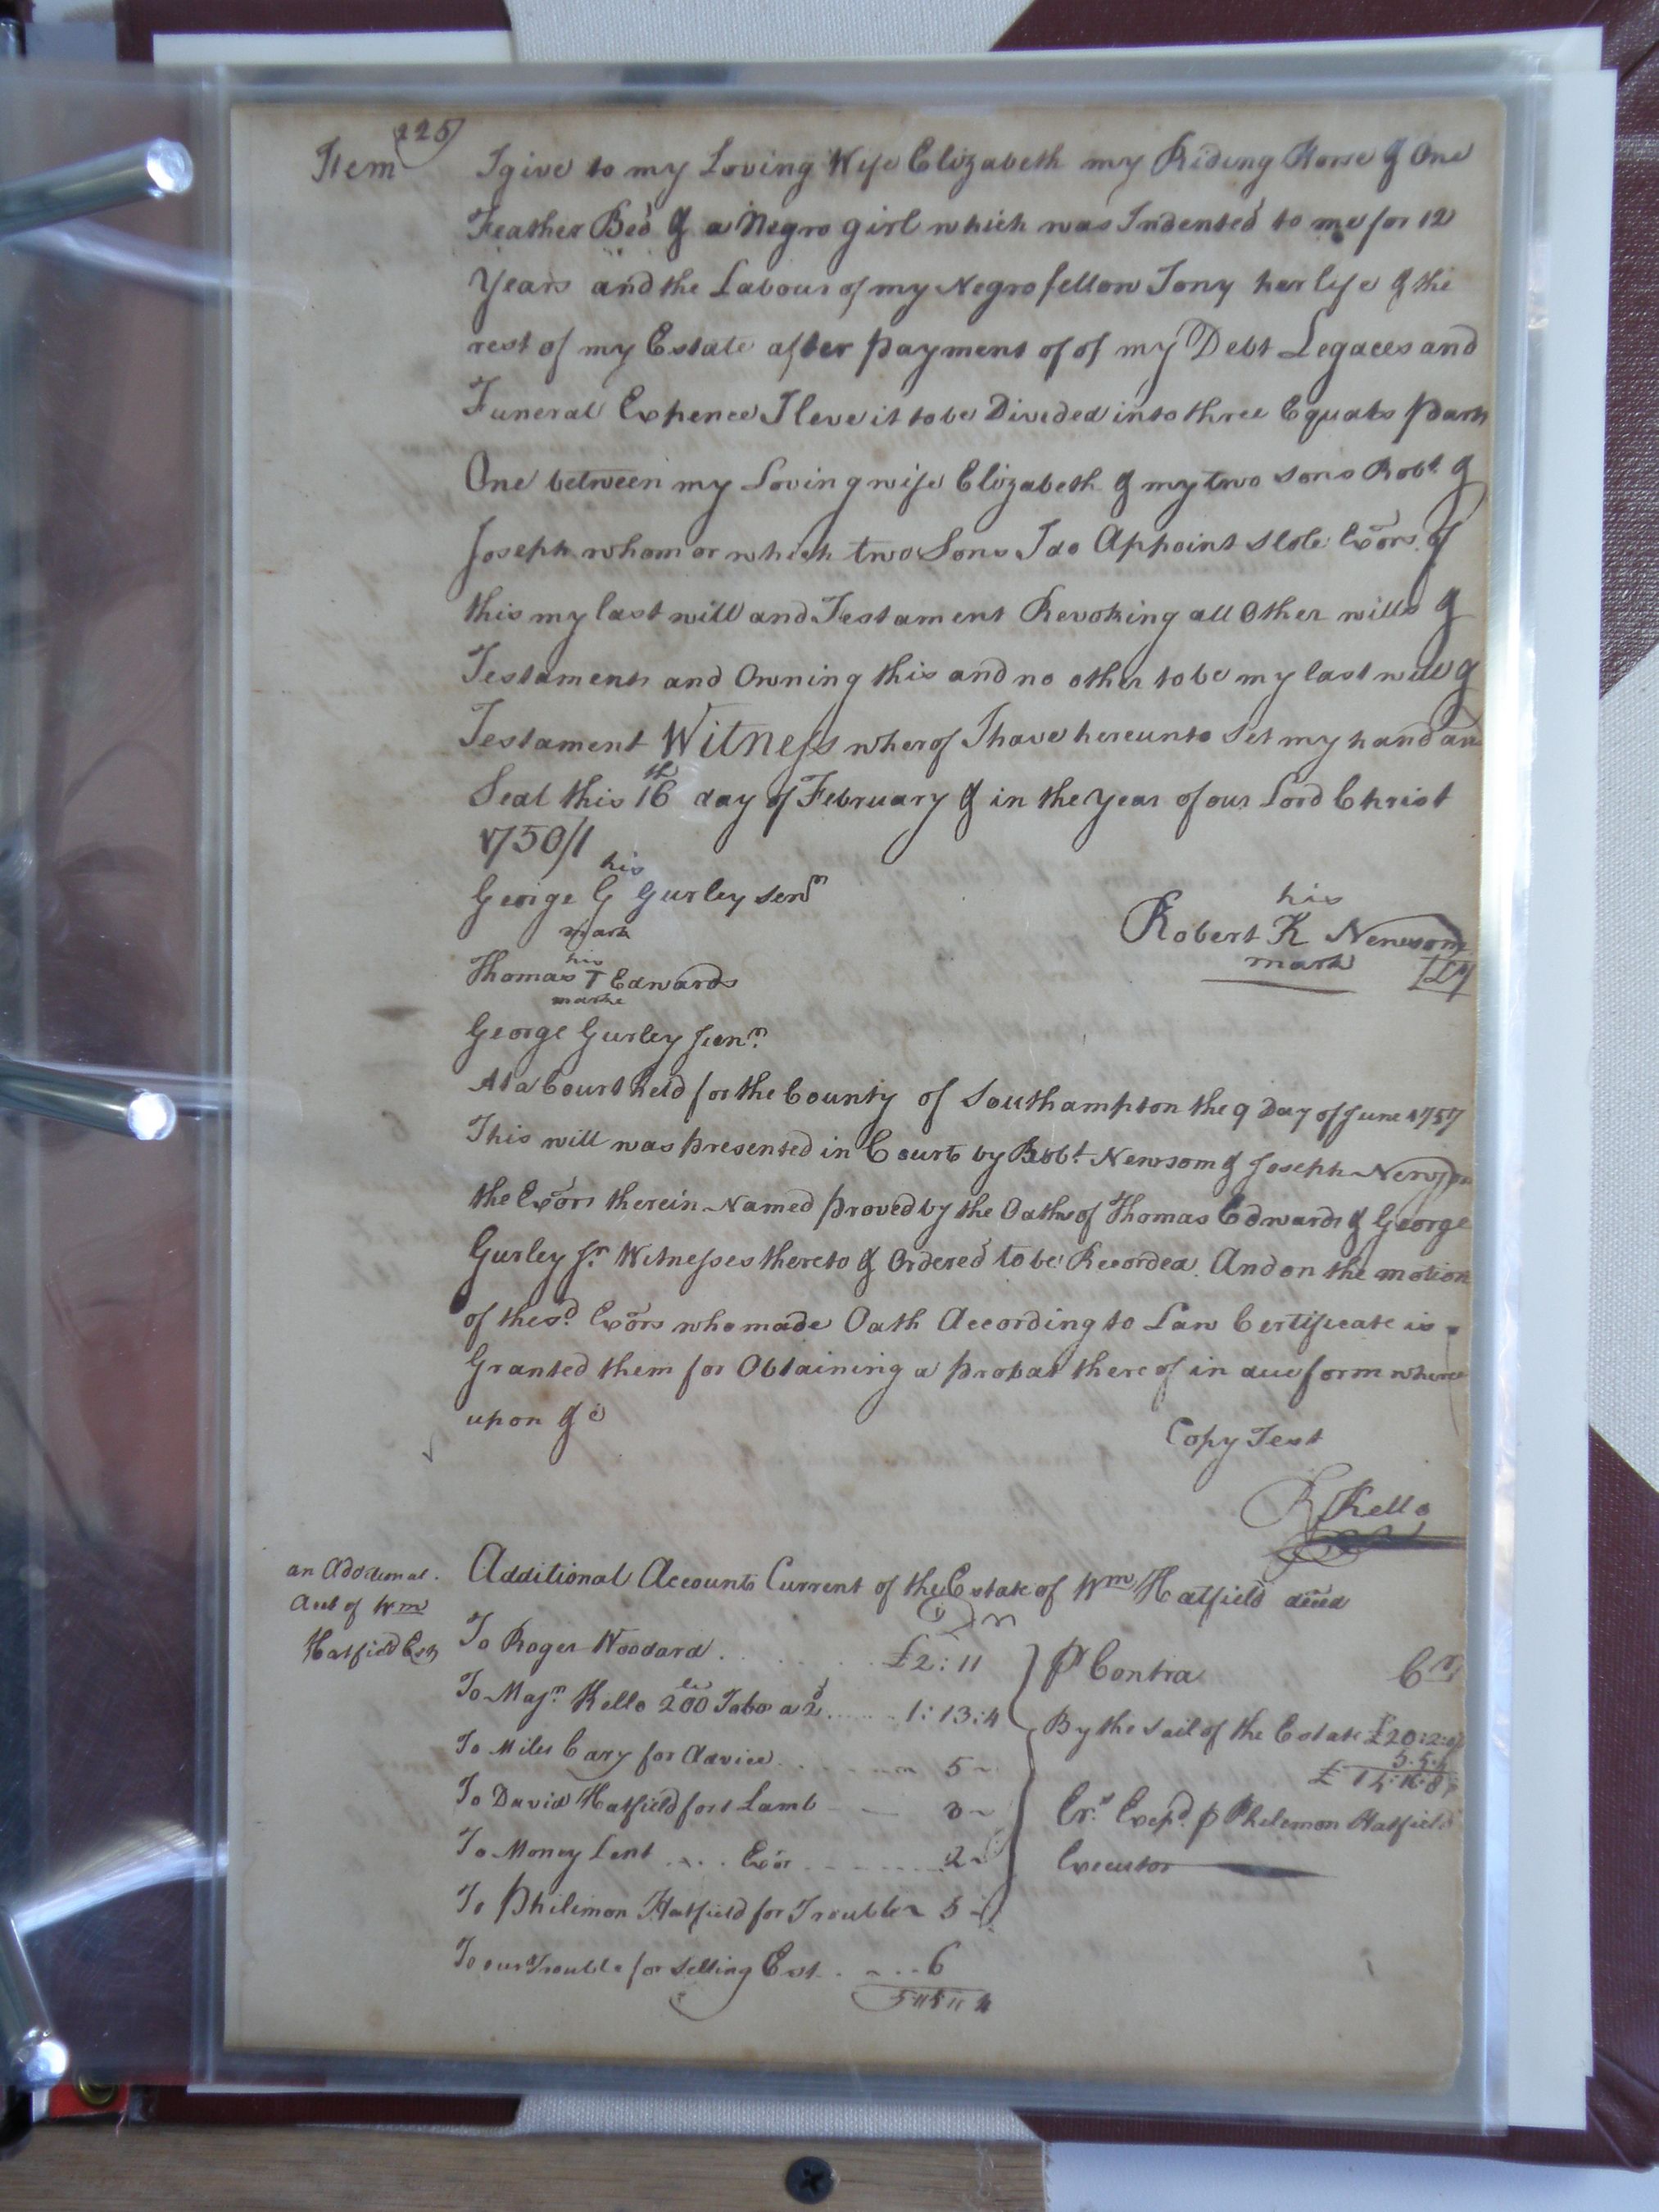 225)
Item I give to my Loving Wife Elizabeth my Riding Horse & One
Feather Bed & a Negro girl which was Indented to me for 12
Years and the Labour of my Negro fellow Tony her life & the
rest of my Estate after payment of of my Debt Legaces and
Funeral Expence I leve it to be Diveded into three Equals parts
One between my Loving wife Elizabeth & my two sons Robt. &
Joseph whom or which two Sons I do Appoint Slole Exors. of
this my last will and Testament Revoking all Other wills &
Testaments and Owning this and no other to be my last will &
Testament Witness wherof I have hereunto Set my hand an
Seal this 16th day of February & in the Year of our Lord Christ
1750/1
his
George G Gurley Senr
mark
his
Robert R Newsom
mark [LS]
his
Thomas T Edwards
marke
George Gurley Junr.
At a Court held for the County of Southampton the 9 Day of June 1757
This will was presented in Court by Robt. Newsom & Joseph Newsom
the Exors therein Named proved by the Oaths of Thomas Edwards & George
Gurley Jr. Witnesses thereto & Ordered to be Recorded. And on the motion
of the sd. Exors who made Oath According to Law Certificate is
Granted them for Obtaining a probat there of in due form where
upon &c
Copy Test
R Kello
an Additional.
Acct of Wm
Hatfield Est
Additional Accounts Current of the Estate of Wm Hatfield deced
Dr
To Roger Woodard . . . . £2:11
To Majr. Kello 200 Tobo a 2d . . . . 1:13:4
To Miles Cary for Advice . . . . 5
To David Hatfield for 1 Lamb 3
To Money Lent . . . Exor . . . . 2
To Philimon Hatfield for Trouble 5
To our Trouble for Selling Est . . . . 6
5"5"4
Pr Contra Cr
By the Sail of the Estate £20:2:
5:5:4
£14:16:8
Crs. Excepd. p Philemon Hatfield
Executor